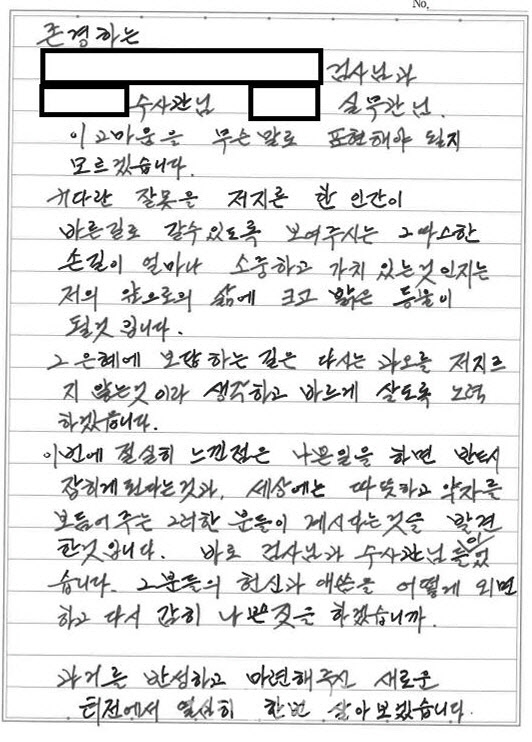 No.
존경하는
검사님과
수사관님 실무관님.
이 고마움을 무슨 말로 표현해야 될지
모르겠습니다.
커다란 잘못을 저지른 한 인간이
바른길로 갈수있도록 보여주시는 그따스한
손길이 얼마나 소중하고 가치 있는것 인지는
저의 앞으로의 삶에 크고 밝은 등불이
될것 입니다.
그 은혜에 보답하는 길은 다시는 과오를 저지르
지 않는것 이라 생각하고 바르게 살도록 노력
하겠습니다.
이번에 절실히 느낀점은 나쁜일을 하면 반드시
잡히게된다는것과, 세상에는 따뜻하고 약자를
보듬어주는 그러한 분들이 계시다는것을 발견
한것입니다. 바로 검사님과 수사관님들이었
습니다. 그분들의 헌신과 애씀을 어떻게 외면
하고 다시 감히 나쁜짓을 하겠습니까.
과거를 반성하고 마련해주신 새로운
터전에서 열심히 한번 살아보겠습니다.